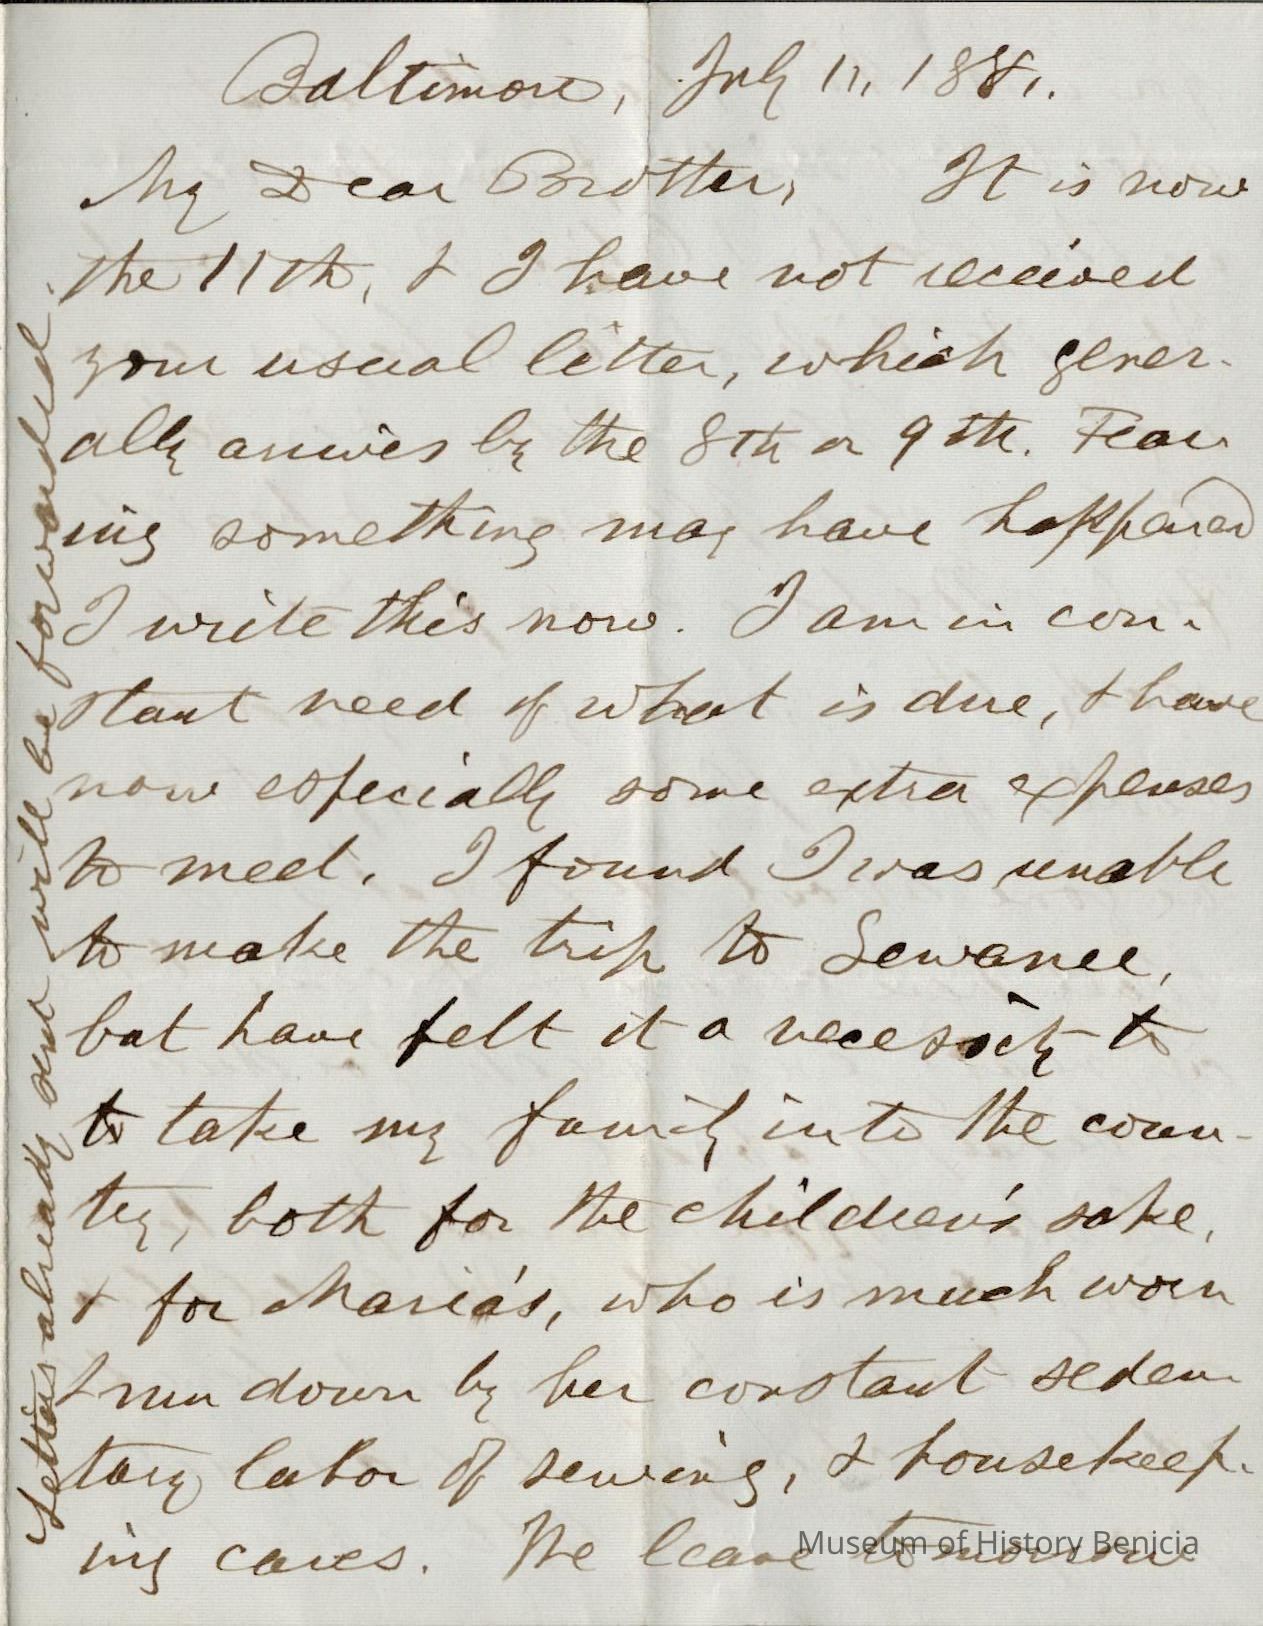 Baltimore, July 11, 1881.
My Dear Brother, It is now
the 11th, & I have not received
your usual letter, which gener-
ally arrives by the 8th or 9th. Fear
ing something may have happened
I write this now. I am in con-
stant need of what is due, & have
now especially some extra expenses
to meet. I found I was unable
to make the trip to Sewanee,
but have felt it a necessity to
to take my family into the coun-
try, both for the children's sake,
& for Maria's, who is much worn
& run down by her constant seden
tary labor of sewing, & housekeep-
ing cares. We leave tomorrow
Letters already sent will be forwarded.
Museum of History Benicia